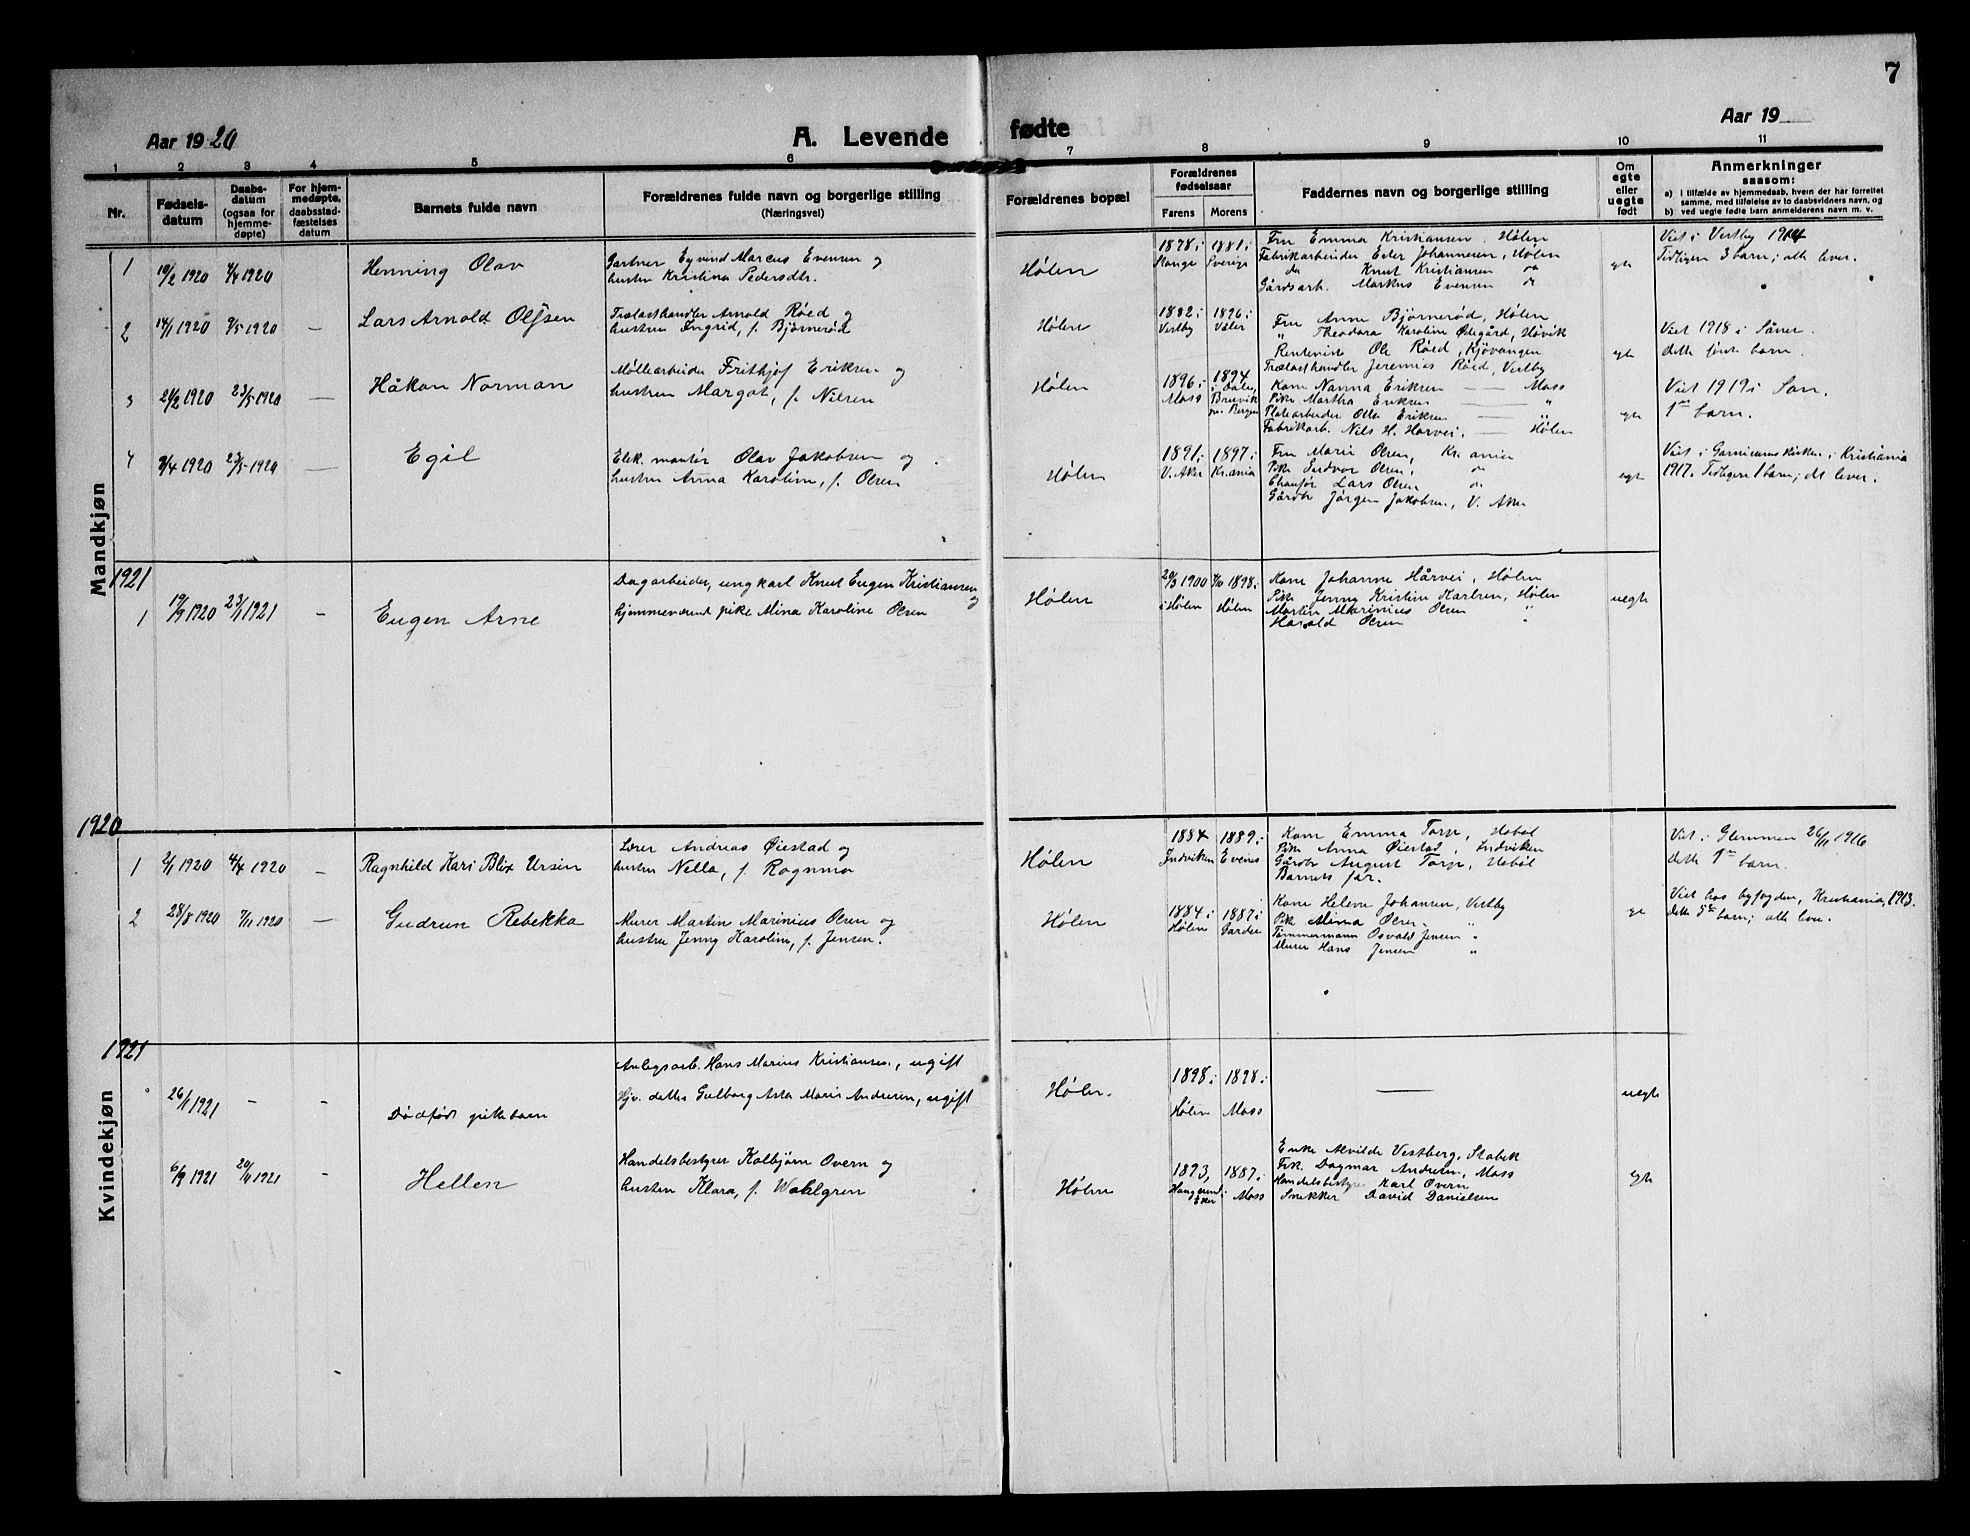 7
Aar 1920
A. Levende fødte
Aar 19
1 2 3 4 5 6 7 8 9 10 11
Nr.
Fødsels-
datum
Daabs-
datum
(ogsaa for
hjemme-
døpte)
For hjem-
medøpte,
daabsstad-
fæstelses
datum
Barnets fulde navn
Forældrenes fulde navn og borgerlige stilling
(Næringsvei)
Forældrenes bopæl
Forældrenes
fødselsaar
Farens Morens
Faddernes navn og borgerlige stilling
Om
egte
eller
uegte
født
Anmerkninger
saasom:
a) i tilfælde av hjemmedaab, hvem der har forrettet
samme, med tilføielse av to daabsvidners navn, og
b) ved uegte fødte barn anmelderens navn m. v.
Mandkjøn
1 10/2 1920 4/4 1920
Henning Olav
Gartner Eyvind Marcus Evensen og
hustru Kristina Pedersdtr.
Hølen
1878 i 1881 i
Stange Sverige
Fru Emma Kristiansen, Hølen
Fabrikarbeider Edler Johannesen, Hølen
do Knut Kristiansen do
Gårdsarb. Markus Evensen do
egte
Viet i Vestby 1914
Tidligere 3 barn; alle lever.
2 14/1 1920 9/5 1920 —
Lars Arnold Olfsen
Trælasthandler Arnold Røed og
hustru Ingrid, f. Bjørnerød
Hølen
1882 i 1896 i
Vestby Våler
Fru Anne Bjørnerød, Hølen
" Theodora Karoline Ødegård, Høvik
Rentenist Ole Røed, Kjøvangen
Trælasthandler Jeremias Røed, Vestby
egte
Viet 1918 i Såner.
dette første barn.
3 21/2 1920 23/5 1920 —
Håkon Norman
Møllearbeider Frithjof Eriksen og
hustru Margot, f. Nilsen
Hølen
1896 i 1894
Moss
Bergen
Kone Nanna Eriksen — Moss
Pike Martha Eriksen — "
Platearbeider Otto Eriksen — "
Fabrikarb. Nils H. Harvei. — Hølen
egte
Viet 1919 i Son.
1ste barn.
4 9/4 1920 23/5 1920 —
Egil
Elek. montør Olav Jakobsen og
hustru Anna Karoline, f. Olsen
Hølen
1891 i 1897 i
V. Aker Kr.ania
Fru Marie Olsen, Kr.ania
Pike Sndvor Olsen, do
Chauför Lars Olsen do
Gårdbr Jørgen Jakobsen, V. Aker
egte
Viet i Garnisonskirken, Kristiania
1917. Tidligere 1 barn; det lever.
1921
1 19/9 1920 23/1 1921 -
Eugen Arne
Dagarbeider, ungkarl Knut Eugen Kristiansen og
hjemmeværende pike Mina Karoline Olsen
Hølen
20/3 1900 9/10 1898 i
i Hølen Hølen
Kone Johanne Hårvei, Hølen
Pike Jenny Kristine Karlsen, Hølen
Martin Marinius Olsen "
Harald Olsen "
uegte
1920
Kvindekjøn
1 2/1 1920 4/4 1920 -
Ragnhild Kari Blix Ursin
Lærer Andreas Øiestad og
hustru Nella, f. Ragnmo
Hølen
1884 1889 i
Indviken Evenes
Kone Emma Torp, Hobøl
Pike Anna Øiestad, Indviken
Gårdbr August Torp, Hobøl
Barnets far.
Viet i Glemmen 26/11 1916
dette 1ste barn.
2 28/8 1920 7/11 1920 -
Gudrun Rebekka
Murer Martin Marinius Olsen og
hustru Jenny Karoline, f. Jensen.
Hølen
1884 i 1887 i
Hølen Garder
Kone Helene Johansen, Vestby
Pike Mina Olsen "
Tømmermann Osvald Jensen "
Murer Hans Jensen "
egte
Viet hos byfogden, Kristiania, 1913.
Dette 5te barn; alle lever.
1921
26/1 1921 - -
Dødfødt pikebarn
Anlegsarb. Hans Marius Kristiansen, ugift
Hjv. datter Gulborg Asta Marie Andresen, ugift
Hølen.
1898 i 1898 i
Hølen Moss
—
uegte
6/9 1921 20/11 1921 -
Hellen
Handelsbestyrer Kolbjørn Overn og
hustru Klara, f. Wahlgren
Hølen
1893, 1887 i
Moss
Enke Alvilde Vestberg, Stabek
Frk. Dagmar Andresen, Moss
Handelsbestyrer Karl Overn "
Snekker David Danielsen
egte